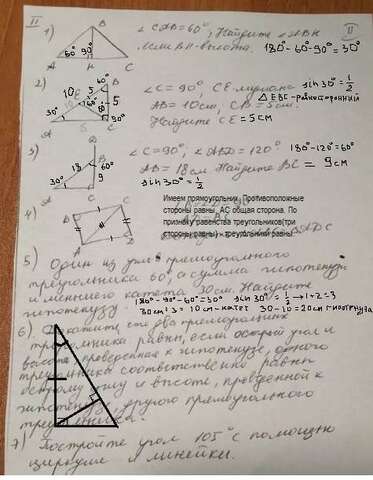 II
II
1) B 60° 90° A H C
∠CAB=60°, Найдите ∠ABH
если BH-высота. 180°-60°-90°=30°
2) 10 5 B 60° 5 30° 90° A C
∠C=90°, CE-медиана sin30°=1/2
△EBC-равносторонний
AB=10см, CB=5см.
Найдите CE=5см
3) 18 B 60° 120° 9 30° A C
∠C=90°; ∠ABD=120° 180°-120°=60°
AB=18см. Найдите BC = 9см
sin30°=1/2
4) B C A D
Имеем прямоугольник. Противоположные
стороны равны. AC общая сторона. По
признаку равенства треугольников(три
стороны равны) - треугольники равны
5) Один из углов прямоугольного
треугольника 60°, а сумма гипотенузы
и меньшего катета 30см. Найдите
гипотенузу 180°-90°-60°=30° sin30°=1/2→1+2=3
30см:3=10см-катет 30-10=20см гипотенуза
6) Докажите, что два прямоугольных
треугольника равны, если острый угол и
высота, проведенная к гипотенузе, одного
треугольника соответственно равны
острому углу и высоте, проведенной к
гипотенузе, другого прямоугольного
треугольника.
7) Постройте угол 105° с помощью
циркуля и линейки.